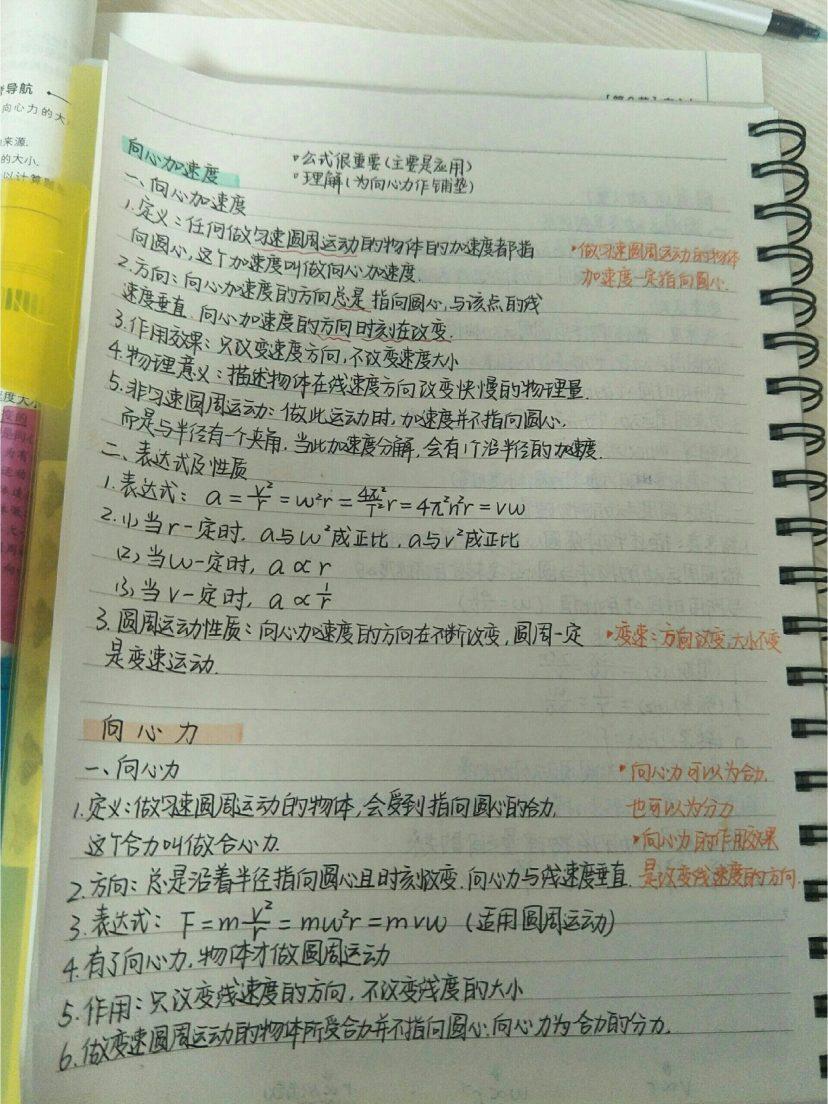 导航
向心力的大
来源.
的大小.
向心加速度
•公式很重要(主要是应用)
•理解(为向心力作铺垫)
一、向心加速度
1.定义:任何做匀速圆周运动的物体的加速度都指
向圆心,这个加速度叫做向心加速度.
•做匀速圆周运动的物体
加速度一定指向圆心.
2.方向:向心加速度的方向总是指向圆心,与该点的线
速度垂直.向心加速度的方向时刻在改变.
3.作用效果:只改变速度方向,不改变速度大小
4.物理意义:描述物体在线速度方向改变快慢的物理量.
5.非匀速圆周运动:做此运动时,加速度并不指向圆心.
而是与半径有一个夹角.当此加速度分解,会有1个沿半径的加速度.
二、表达式及性质
1.表达式: a=v²/r=ω²r=4π²/T²r=4π²n²r=vω
2.(1)当r一定时,a与ω²成正比,a与v²成正比
(2)当ω一定时,a∝r
(3)当v一定时,a∝1/r
3.圆周运动性质:向心加速度的方向在不断改变,圆周一定
是变速运动.
•变速:方向改变,大小不变
向心力
一、向心力
•向心力可以为合力,
也可以为分力
1.定义:做匀速圆周运动的物体,会受到指向圆心的合力,
这个合力叫做合心力.
•向心力的作用效果
是改变线速度的方向.
2.方向:总是沿着半径指向圆心且时刻改变.向心力与线速度垂直.
3.表达式: F=mv²/r=mω²r=mvω (适用圆周运动)
4.有了向心力,物体才做圆周运动
5.作用:只改变线速度的方向,不改变线度的大小
6.做变速圆周运动的物体所受合力并不指向圆心.向心力为合力的分力.